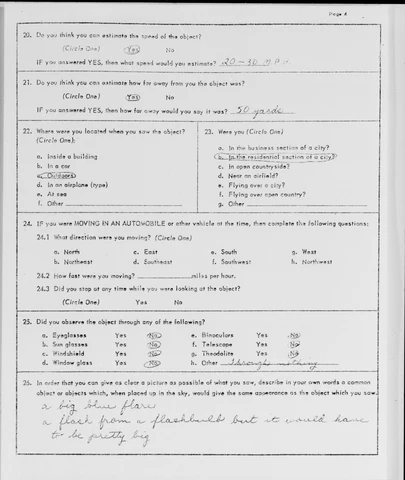 Page 4
20. Do you think you can estimate the speed of the object?
(Circle One) Yes No
IF you answered YES, then what speed would you estimate? 20-30 M.P.H.
21. Do you think you can estimate how far away from you the object was?
(Circle One) Yes No
IF you answered YES, then how far away would you say it was? 50 yards
22. Where were you located when you saw the object?
(Circle One)
a. Inside a building
b. In a car
c. Outdoors
d. In an airplane (type)
e. At sea
f. Other
23. Were you (Circle One)
a. In the business section of a city?
b. In the residential section of a city?
c. In open countryside?
d. Near an airfield?
e. Flying over a city?
f. Flying over open country?
g. Other
24. IF you were MOVING IN AN AUTOMOBILE or other vehicle at the time, then complete the following questions:
24.1 What direction were you moving? (Circle One)
a. North c. East e. South g. West
b. Northeast d. Southeast f. Southwest h. Northwest
24.2 How fast were you moving? miles per hour.
24.3 Did you stop at any time while you were looking at the object?
(Circle One) Yes No
25. Did you observe the object through any of the following?
a. Eyeglasses Yes No e. Binoculars Yes No
b. Sun glasses Yes No f. Telescope Yes No
c. Windshield Yes No g. Theodolite Yes No
d. Window glass Yes No h. Other Through nothing
26. In order that you can give as clear a picture as possible of what you saw, describe in your own words a common
object or objects which, when placed up in the sky, would give the same appearance as the object which you saw.
a big blue flare
a flash from a flashbulb but it would have
to be pretty big